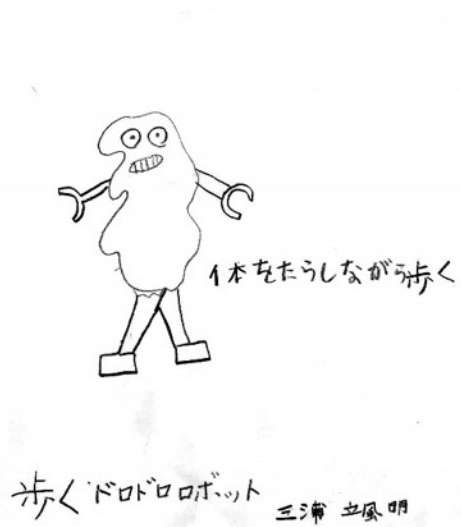 体をたらしながら歩く
歩くドロドロロボット
三浦 立風明